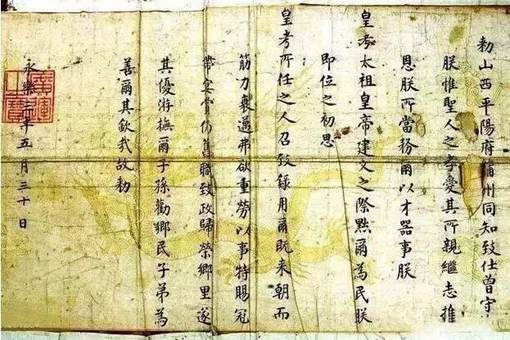 勑山西平陽府蒲州同知致仕曾守
朕惟聖人之孝愛其所親繼志推
恩朕所當務爾以才器事朕
皇考太祖皇帝建文之際黜爾為民朕
即位之初思
皇考所任之人召致錄用爾既来朝而
筋力衰邁弗欲重勞以事特賜冠
帶宴賞仍舊職致政歸榮鄉里遂
其優游撫爾子孫勸鄉民子弟為
善爾其欽哉故勑
永樂年五月三十日